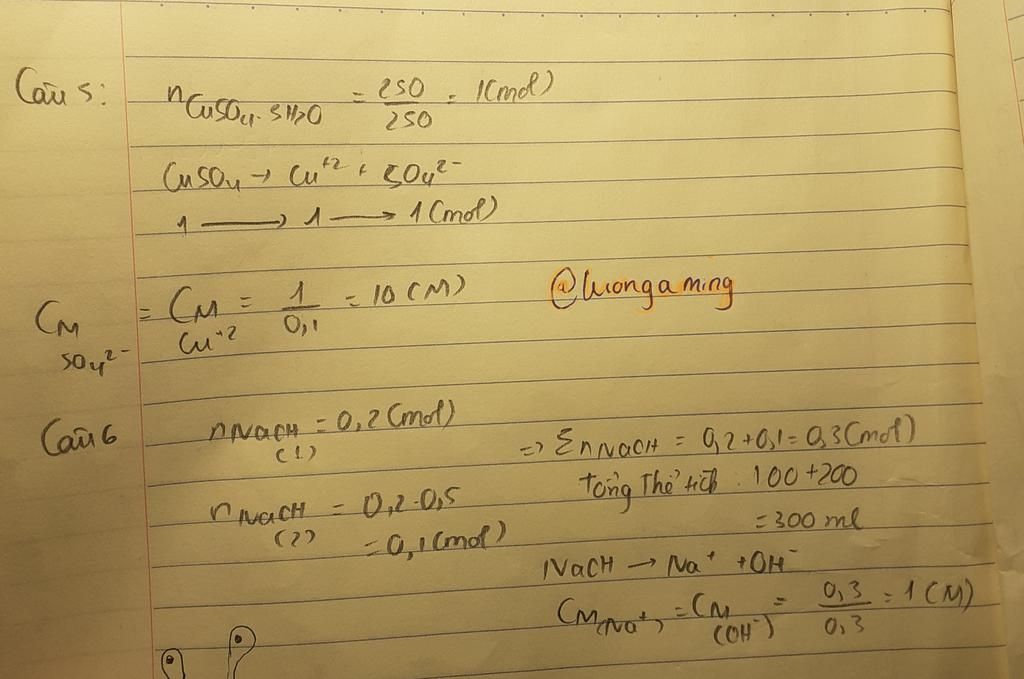 Câu 5: nCuSO₄.5H₂O = 250/250 = 1(mol)
CuSO₄ → Cu⁺² + SO₄²⁻
1 → 1 → 1(mol)
CM SO₄²⁻ = CM Cu⁺² = 1/0,1 = 10 (M)
@luongaming
Câu 6 nNaOH (1) = 0,2 (mol)
nNaOH (2) = 0,2.0,5
= 0,1 (mol)
=> ΣnNaOH = 0,2+0,1 = 0,3(mol)
Tổng thể tích : 100 +200
= 300 ml
NaOH → Na⁺ + OH⁻
CM(Na⁺) = CM (OH⁻) = 0,3/0,3 = 1 (M)